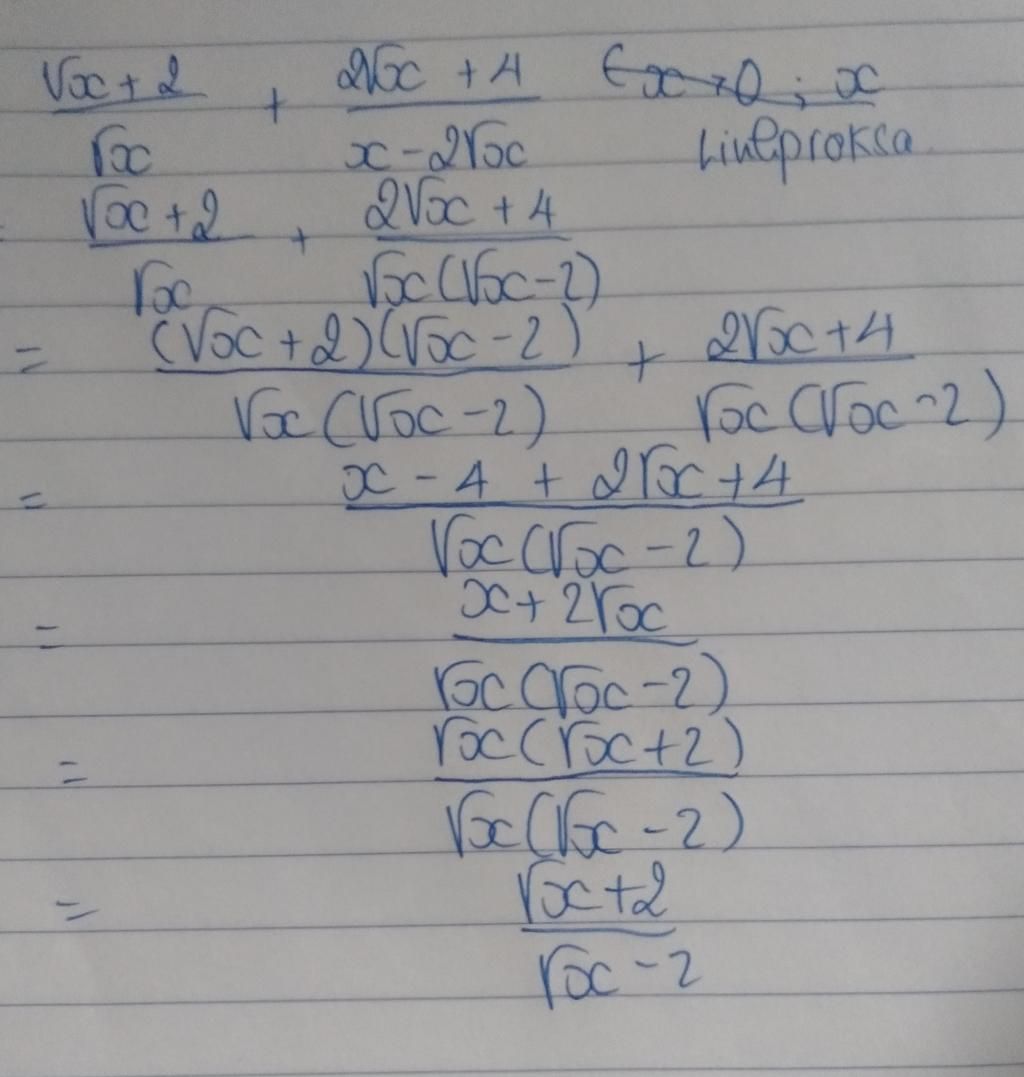 √x + 2 / √x + 2√x + 4 / x - 2√x
Lineproksa
√x + 2 / √x + 2√x + 4 / √x(√x - 2)
= (√x + 2)(√x - 2) / √x(√x - 2) + 2√x + 4 / √x(√x - 2)
= x - 4 + 2√x + 4 / √x(√x - 2)
= x + 2√x / √x(√x - 2)
= √x(√x + 2) / √x(√x - 2)
= √x + 2 / √x - 2